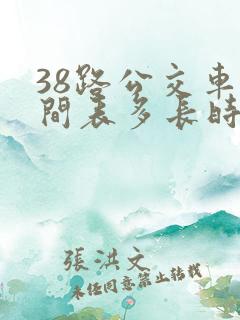 38路公交車
間表多長時
張洪文
未经同意禁止转载